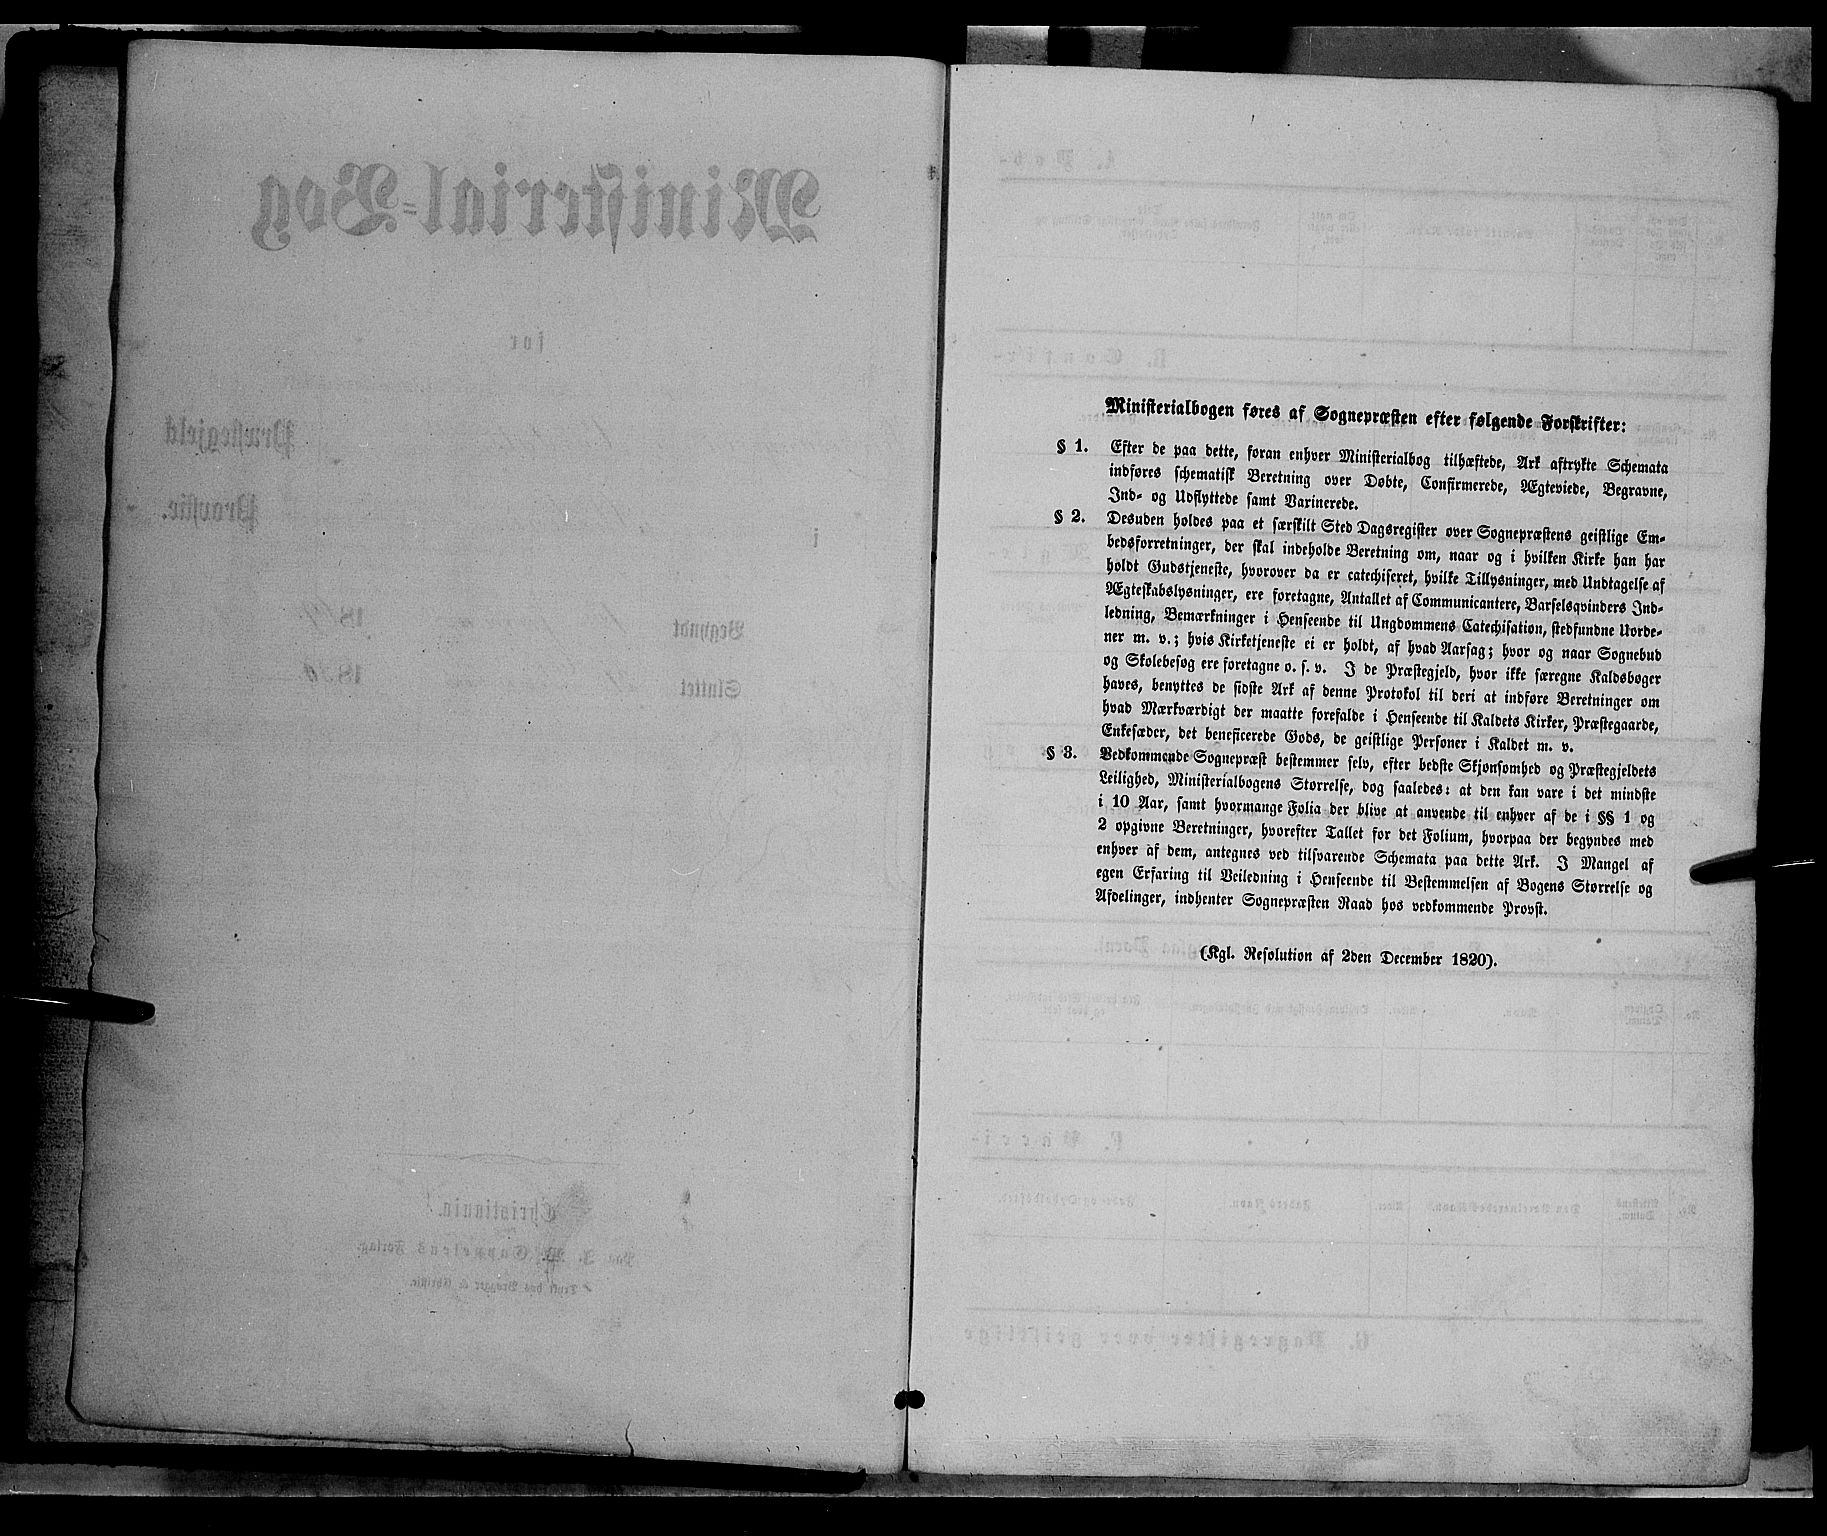 Ministerial-Bog
for
Præstegjeld
i
Provstie.
Begyndt 18
Sluttet 18
Christiania.
Paa J. W. Cappelens Forlag.
Trykt hos Brøgger & Christie.
Ministerialbogen føres af Sognepræsten efter følgende Forskrifter:
§ 1. Efter de paa dette, foran enhver Ministerialbog tilhæftede, Ark aftrykte Schemata
indføres schematisk Beretning over Døbte, Confirmerede, Ægteviede, Begravne,
Ind- og Udflyttede samt Vaxinerede.
§ 2. Desuden holdes paa et særskilt Sted Dagsregister over Sognepræstens geistlige Em-
bedsforretninger, der skal indeholde Beretning om, naar og i hvilken Kirke han har
holdt Gudstjeneste, hvorover da er catechiseret, hvilke Tillysninger, med Undtagelse af
Ægteskabslysninger, ere foretagne, Antallet af Communicantere, Barselqvinders Ind-
ledning, Bemærkninger i Henseende til Ungdommens Catechisation, stedfundne Uorde-
ner m. v.; hvis Kirketjeneste ei er holdt, af hvad Aarsag; hvor og naar Sognebud
og Skolebesøg ere foretagne o. s. v. I de Præstegjeld, hvor ikke særegne Kaldsbøger
haves, benyttes de sidste Ark af denne Protokol til deri at indføre Beretninger om
hvad Mærkværdigt der maatte forefalde i Henseende til Kaldets Kirker, Præstegaarde,
Enkesæder, det beneficerede Gods, de geistlige Personer i Kaldet m. v.
§ 3. Vedkommende Sognepræst bestemmer selv, efter bedste Skjønsomhed og Præstegjeldets
Leilighed, Ministerialbogens Størrelse, dog saaledes: at den kan vare i det mindste
i 10 Aar, samt hvormange Folia der blive at anvende til enhver af de i §§ 1 og
2 opgivne Beretninger, hvorefter Tallet for det Folium, hvorpaa der begyndes med
enhver af dem, antegnes ved tilsvarende Schemata paa dette Ark. I Mangel af
egen Erfaring til Veiledning i Henseende til Bestemmelsen af Bogens Størrelse og
Afdelinger, indhenter Sognepræsten Raad hos vedkommende Provst.
(Kgl. Resolution af 2den December 1820).